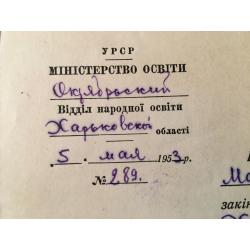 УРСР
МІНІСТЕРСТВО ОСВІТИ
Октябрьский
Відділ народної освіти
Харьковской області
5. мая 1953 р.
№ 289.
Ма
закін